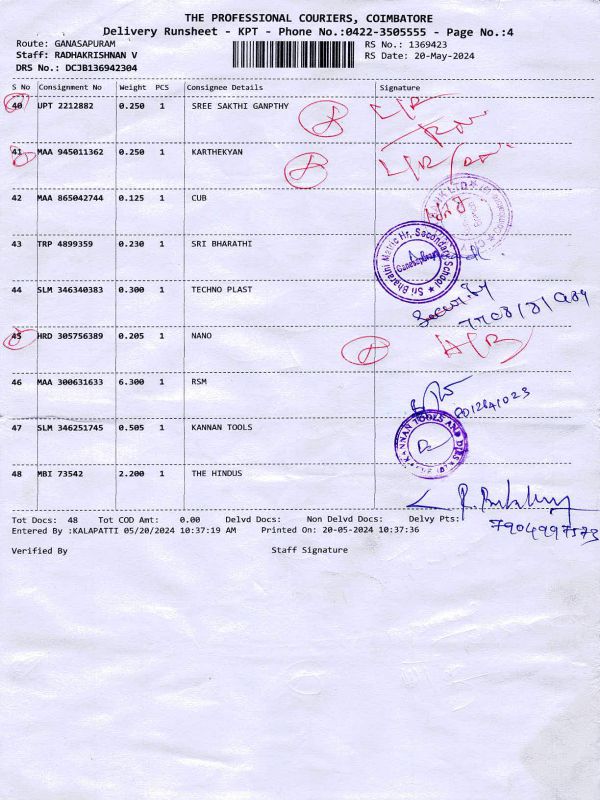 THE PROFESSIONAL COURIERS, COIMBATORE
Delivery Runsheet - KPT - Phone No.:0422-3505555 - Page No.:4
Route: GANASAPURAM RS No.: 1369423
Staff: RADHAKRISHNAN V RS Date: 20-May-2024
DRS No.: DCJB136942304
S No Consignment No Weight PCS Consignee Details Signature
40 UPT 2212882 0.250 1 SREE SAKTHI GANPTHY
41 MAA 945011362 0.250 1 KARTHEKYAN
42 MAA 865042744 0.125 1 CUB
43 TRP 4899359 0.230 1 SRI BHARATHI
Sri Bharathi Matric Hr. Secondary School
44 SLM 346340383 0.300 1 TECHNO PLAST
Security
45 HRD 305756389 0.205 1 NANO
46 MAA 300631633 6.300 1 RSM
47 SLM 346251745 0.505 1 KANNAN TOOLS
KANNAN TOOLS AND DIES
48 MBI 73542 2.200 1 THE HINDUS
Tot Docs: 48 Tot COD Amt: 0.00 Delvd Docs: Non Delvd Docs: Delvy Pts:
7904997573
Entered By :KALAPATTI 05/20/2024 10:37:19 AM Printed On: 20-05-2024 10:37:36
Verified By Staff Signature